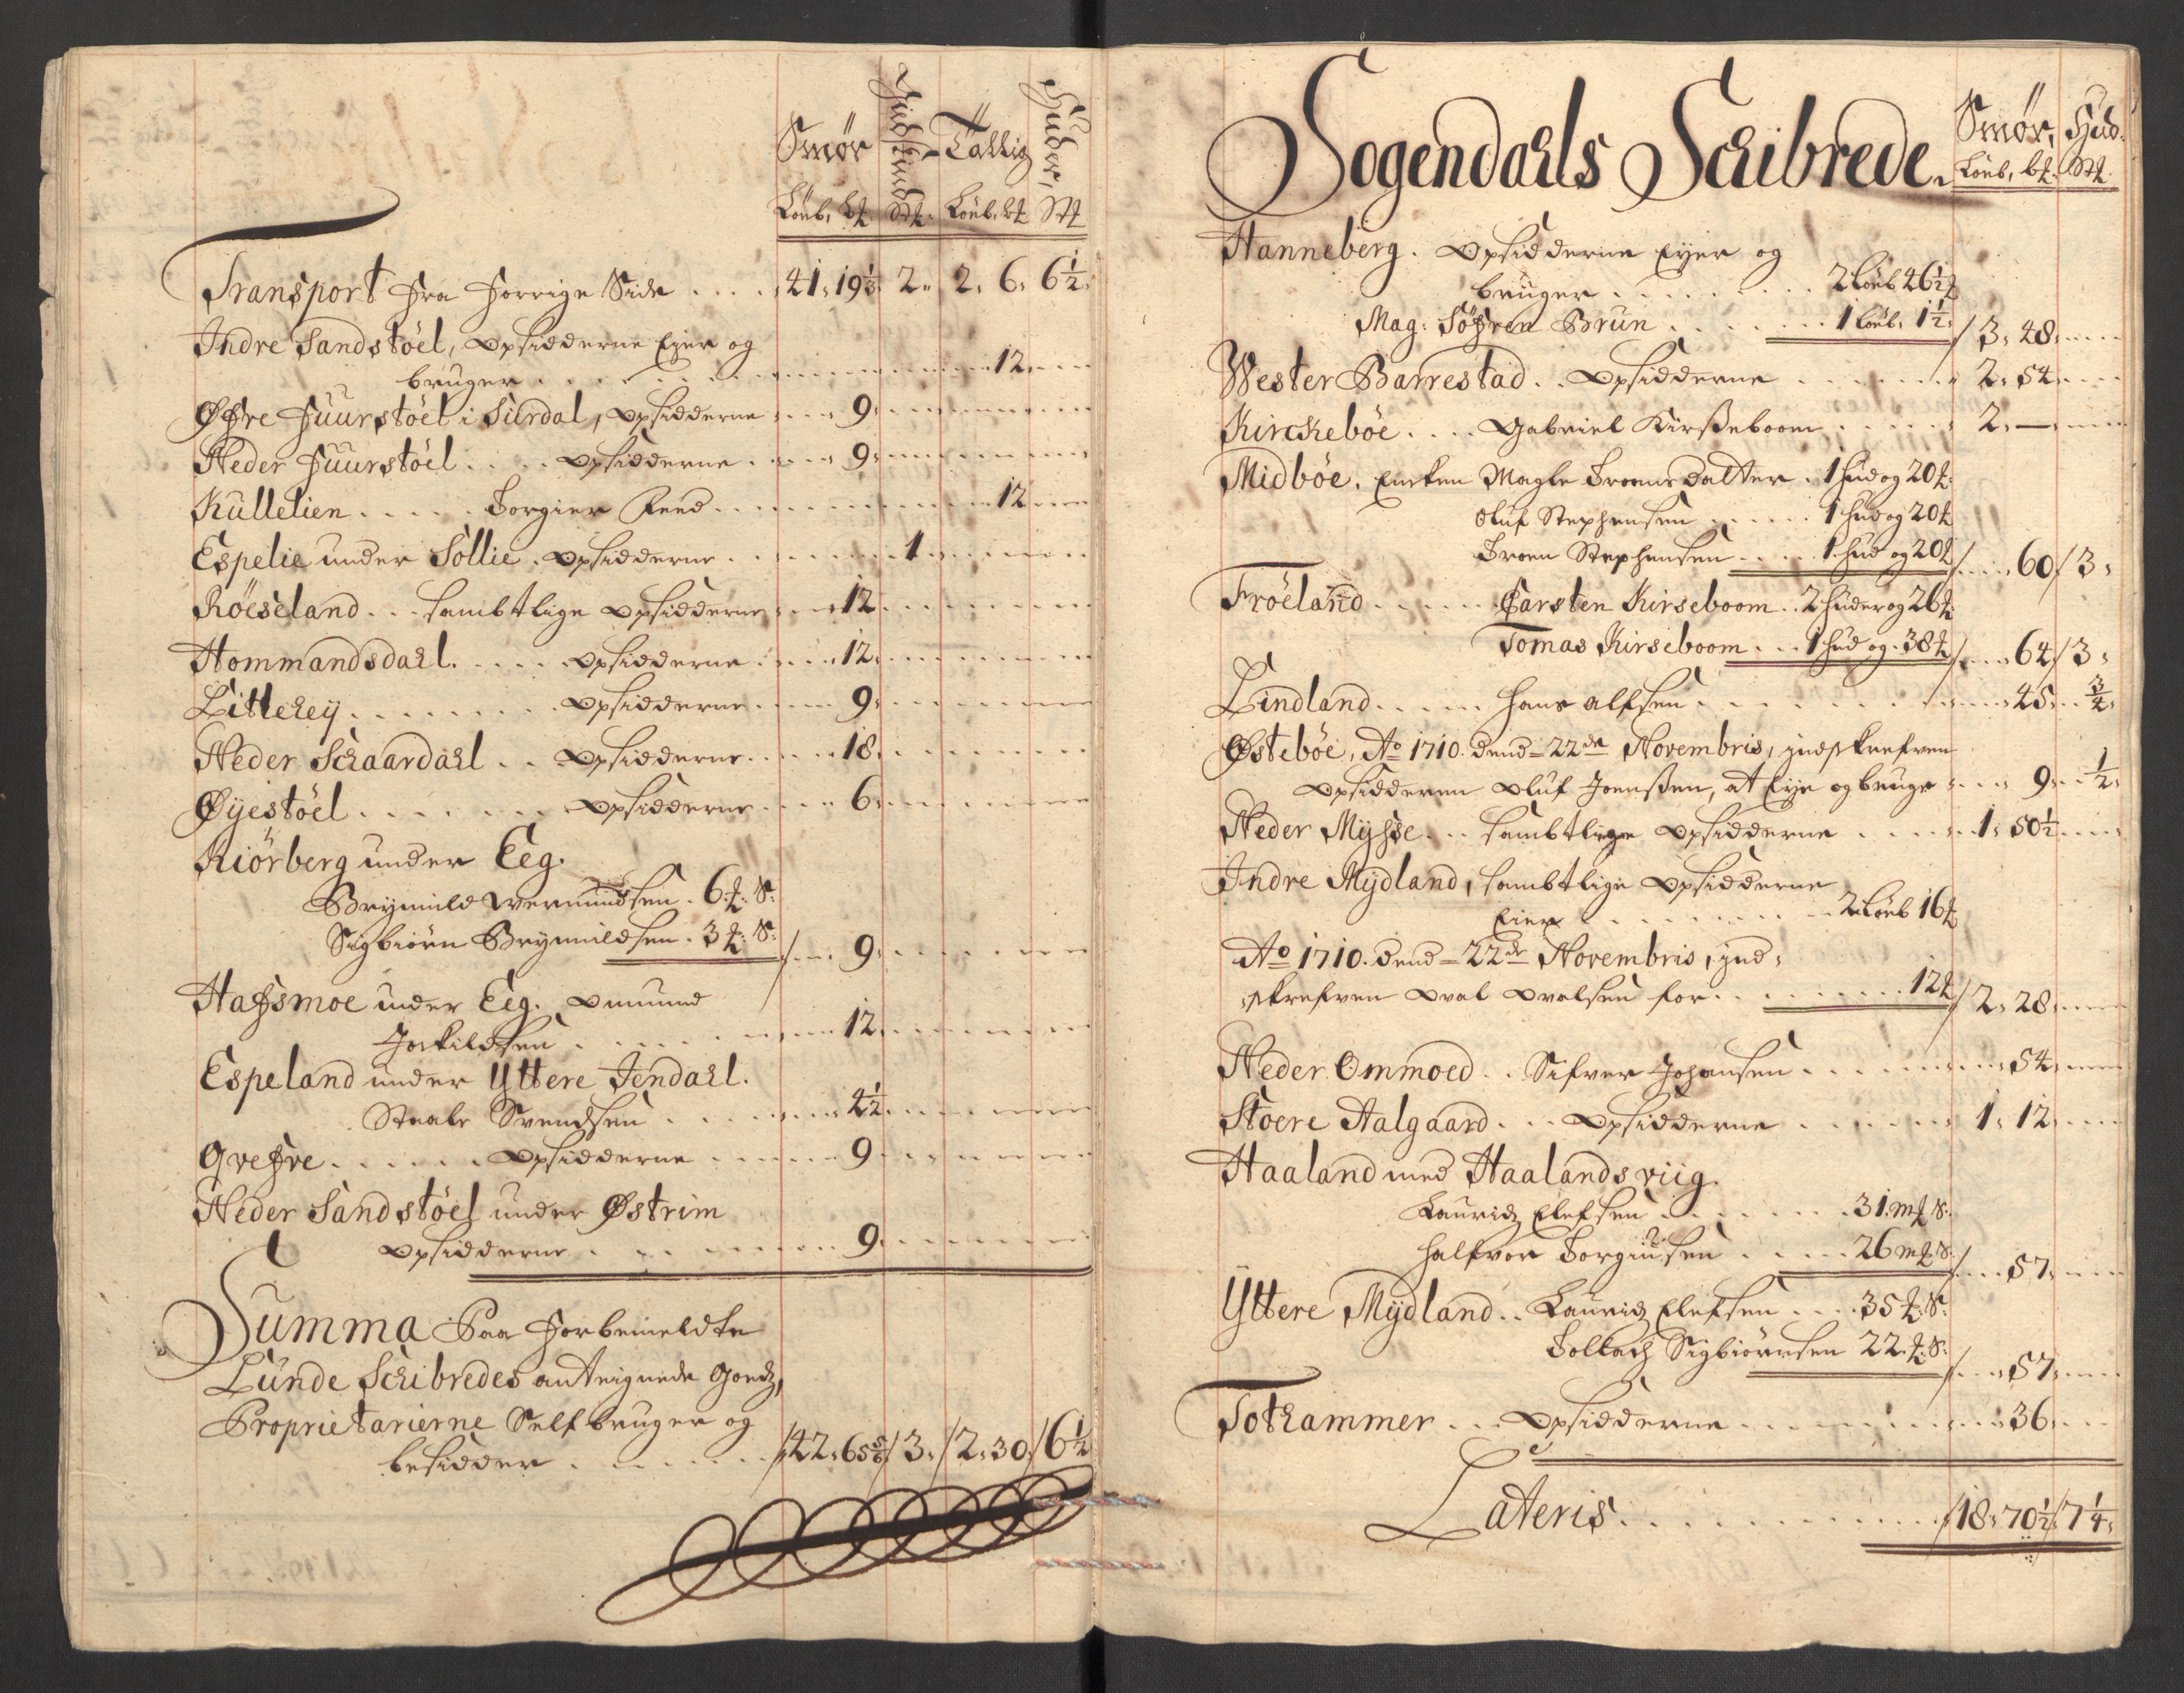 Smør Tallig Huder,
Løub, ℔. Stk. Løub, ℔ Stk
Transport fra Forrige Side . . . . 41, 19⅓ 2,, 2, 6, 6½,
Indre Sandstöel, Opsidderne Eyer og
bruger . . . . . . 12,
Øfre Fuurstöel i Siirdal, Opsidderne . . . 9,
Neder Fuurstöel . . . . Opsidderne . . . 9,
Küllelien . . . . . Torgier . . . 12
Espelie under Söllie . Opsidderne . . . . 1
Röeseland . . . Sambtlige Opsidderne . . . 12
Hommandsdahl . . . . . Opsidderne . . . 12,
Litlehey . . . . . . . . Opsidderne . . . 9,
Neder Schaardahl . . Opsidderne . . . 18,
Øyestöel . . . . . . . Opsidderne . . . 6,
Kiörberg under Eeg.
Brynnild Wermundsen . 6 ℔: S:
Sigbiörn Brynnildsen . 3 ℔: S: / . . . 9
Hafsmoe under Eeg. Omund
Jorkildsen . . . . . . 12,
Espeland under Yttere Jendahl.
Staale Svendsen . . . . . . 4½
Grefre . . . . . . Opsidderne . . . . 9
Neder Sandstöel under Østrim
Opsidderne . . . . . . 9,
Summa Paa Forbemeldte
Lünde Schibredes anteignede Goedz,
Proprietarierne Self bruger og
besidder . . . . . . /42, 65⅚/ 3, /2, 30, /6½
Sogendahls Schibrede. Smør, Hud.
Løub, ℔. Stk.
Hanneberg . Opsidderne Eyer og
bruger . . . . . . . 2 Løub 46½ ℔
Mag: Söfren Brun . . . . . . 1 Løub, 1½, / 3, 48,
Wester Barrestad . . Opsidderne . . . . . . 2, 54,
Kirckebøe . . . . Gabriel Kirßeboom . . . . . 2, —
Midbøe. Encken Magle Troensdatter . 1 hud og 20 ℔
Oluf Stephensen . . . . . 1 hud og 20 ℔
Troen Stephensen . . . . 1 hud og 20 ℔ / . . . 60 / 3,
Fröeland . . . . . . Carsten Kirseboom . . 2 huder og 26 ℔
Tomas Kirseboom . . . 1 hud og 38 ℔ / . . . 64 / 3,
Lindland . . . . . Hans Alfsen . . . . . . . 45, ¾,
Østebøe, Ao 1710. dend 22de Novembris, indskrefven
Opsidderen Oluf Joenßen, at Eye og bruge . . . 9, ½,
Neder Myhse . . . Sambtlige Opsidderne . . . . 1, 50½
Indre Mydland, Sambtlige Opsidderne
Eier . . . . . . . . . . 2 Løub 16 ℔
Ao 1710. dend 22de Novembris, ind,
skrefven Oval Ovalsen for . . . . . . . 12 ℔ / 2, 28,
Neder Ommoed . . Sifver Johansen . . . . . . 54,
Stoere Aalgaard . . . Opsidderne . . . . . . 1, 12,
Haaland med Haalands viig.
Lauridz Elefsen . . . . . . . 31 m℔ S:
Halfvor Torgiusen . . . . . 26 m℔ S: / . . . 57,
Yttere Mydland . . Lauridz Elefsen . . . 35 ℔: S:
Tollach Sigbiörnsen 22 ℔: S: / . . . 57,
Tothammer . . . Opsidderne . . . . . . 36,
Lateris . . . . . . . . . . . /18, 70½/ 7¼,